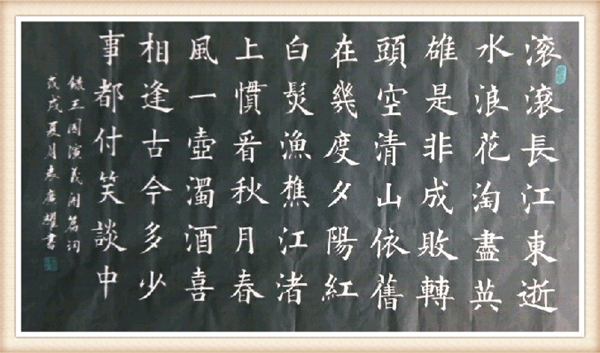 滚滾長江東逝
水浪花淘盡英
雄是非成敗轉
頭空清山依舊
在幾度夕陽紅
白髮漁樵江渚
上慣看秋月春
風一壺濁酒喜
相逢古今多少
事都付笑談中
錄三國演義開篇詞
戊戌夏月耀書